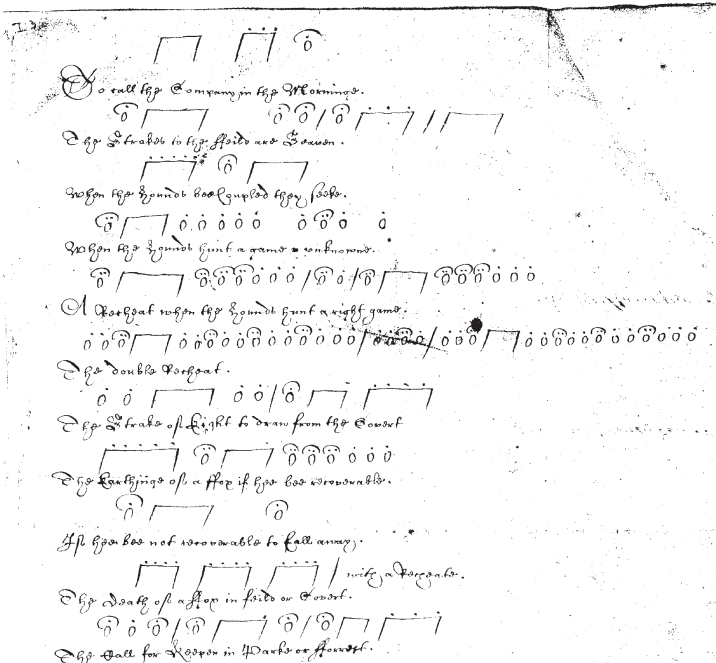 To call the Company in the Morninge.
The Strakes to the ffeild are Seaven.
When the Hounds bee Coupled they seeke.
When the Hounds hunt a game unknowne.
A Recheat when the Hounds hunt a right game.
The double Recheat.
The Strake of Eight to draw from the Covert
The Earthinge of a ffox if hee bee recoverable.
If hee bee not recoverable to Call away.
with a Recheate.
The death of a ffox in feild or Covert.
The Call for Keeper in Parke or fforrest.